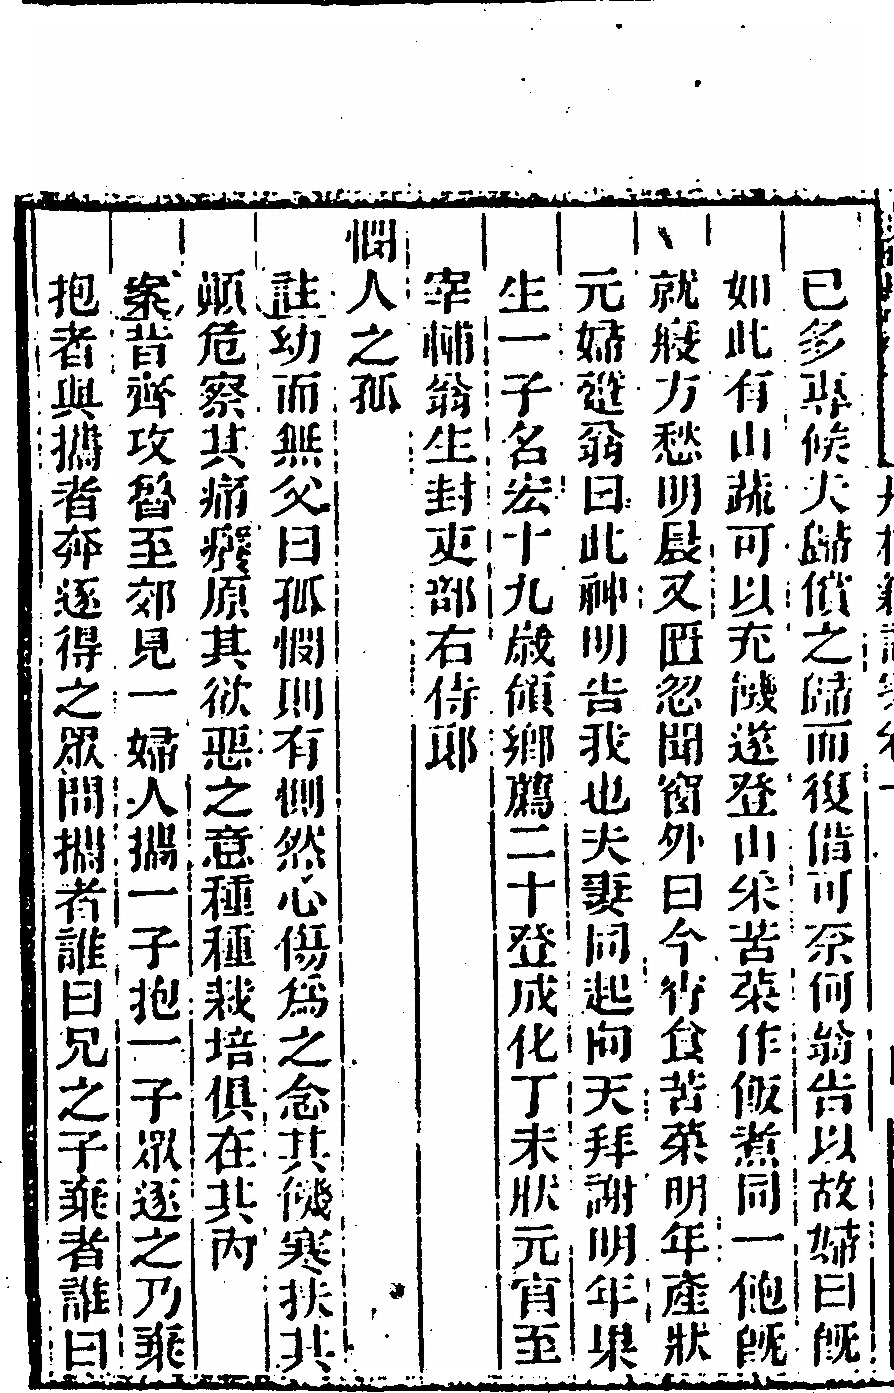 已多專候大歸償之歸而復借可奈何翁告以故婦曰旣
如此有山蔬可以充饑遂登山采苦菜作飯煮同一飽旣
就寢方愁明晨又匱忽聞窗外曰今宵食苦菜明年產狀
元婦趯翁曰此神明告我也夫妻同起向天拜謝明年果
生一子名宏十九歲領鄉薦二十登成化丁未狀元官至
宰輔翁生封吏部右侍郎
憫人之孤
註幼而無父曰孤憫則有惻然心傷爲之念其饑寒扶其
顛危察其痛癢原其欲惡之意種種栽培俱在其內
案昔齊攻魯至郊見一婦人攜一子抱一子眾逐之乃棄
抱者與攜者奔逐得之眾問攜者誰曰兄之子棄者誰曰